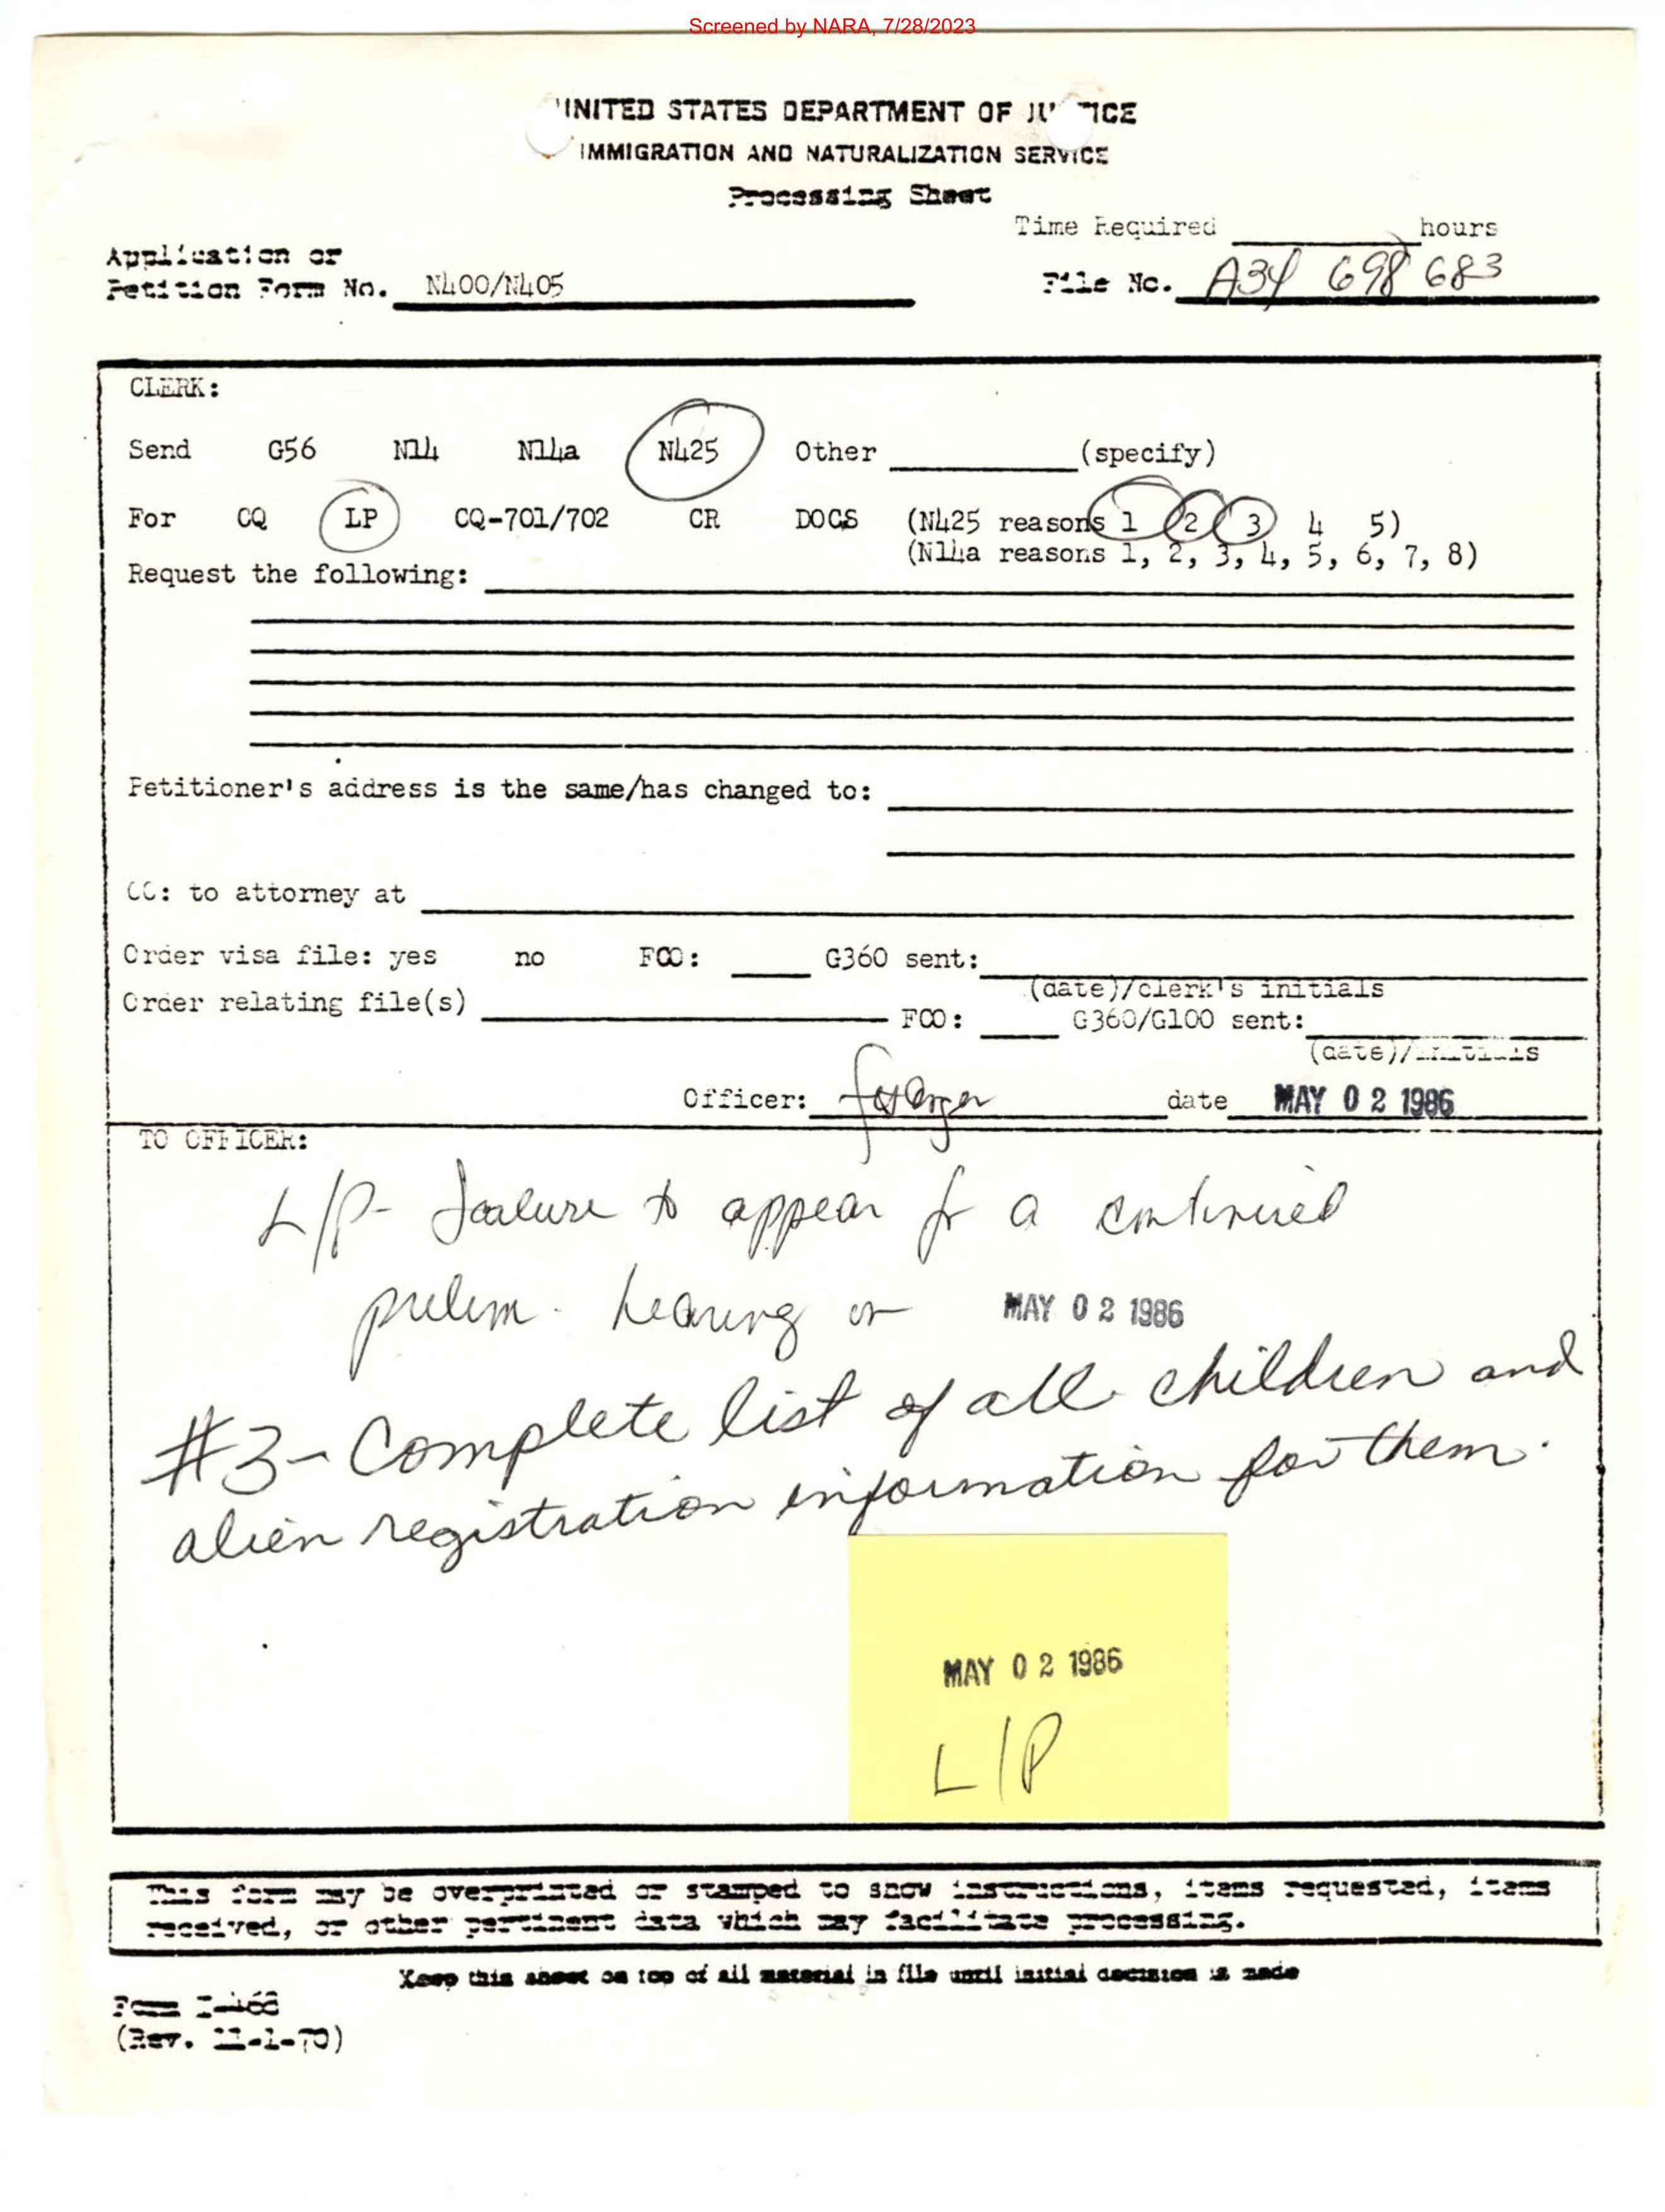 Screened by NARA, 7/28/2023
UNITED STATES DEPARTMENT OF JUSTICE
IMMIGRATION AND NATURALIZATION SERVICE
Processing Sheet
Time Required hours
Application or
Petition Form No. N400/N405
File No. A34 698 683
CLERK:
Send G56 N14 N14a N425 Other (specify)
For CQ LP CQ-701/702 CR DOCS (N425 reasons 1 2 3 4 5)
(N14a reasons 1, 2, 3, 4, 5, 6, 7, 8)
Request the following:
Petitioner's address is the same/has changed to:
CC: to attorney at
Order visa file: yes no FCO: G360 sent:
(date)/clerk's initials
Order relating file(s) FCO: G360/G100 sent:
(date)/initials
Officer: date MAY 02 1986
TO OFFICER:
L/P- Failure to appear for a continued
prelim. hearing on MAY 02 1986
#3- Complete list of all children and
alien registration information for them.
MAY 02 1986
L/P
This form may be overprinted or stamped to show instructions, items requested, items
received, or other pertinent data which may facilitate processing.
Keep this sheet on top of all material in file until initial decision is made
Form I-468
(Rev. 11-1-70)